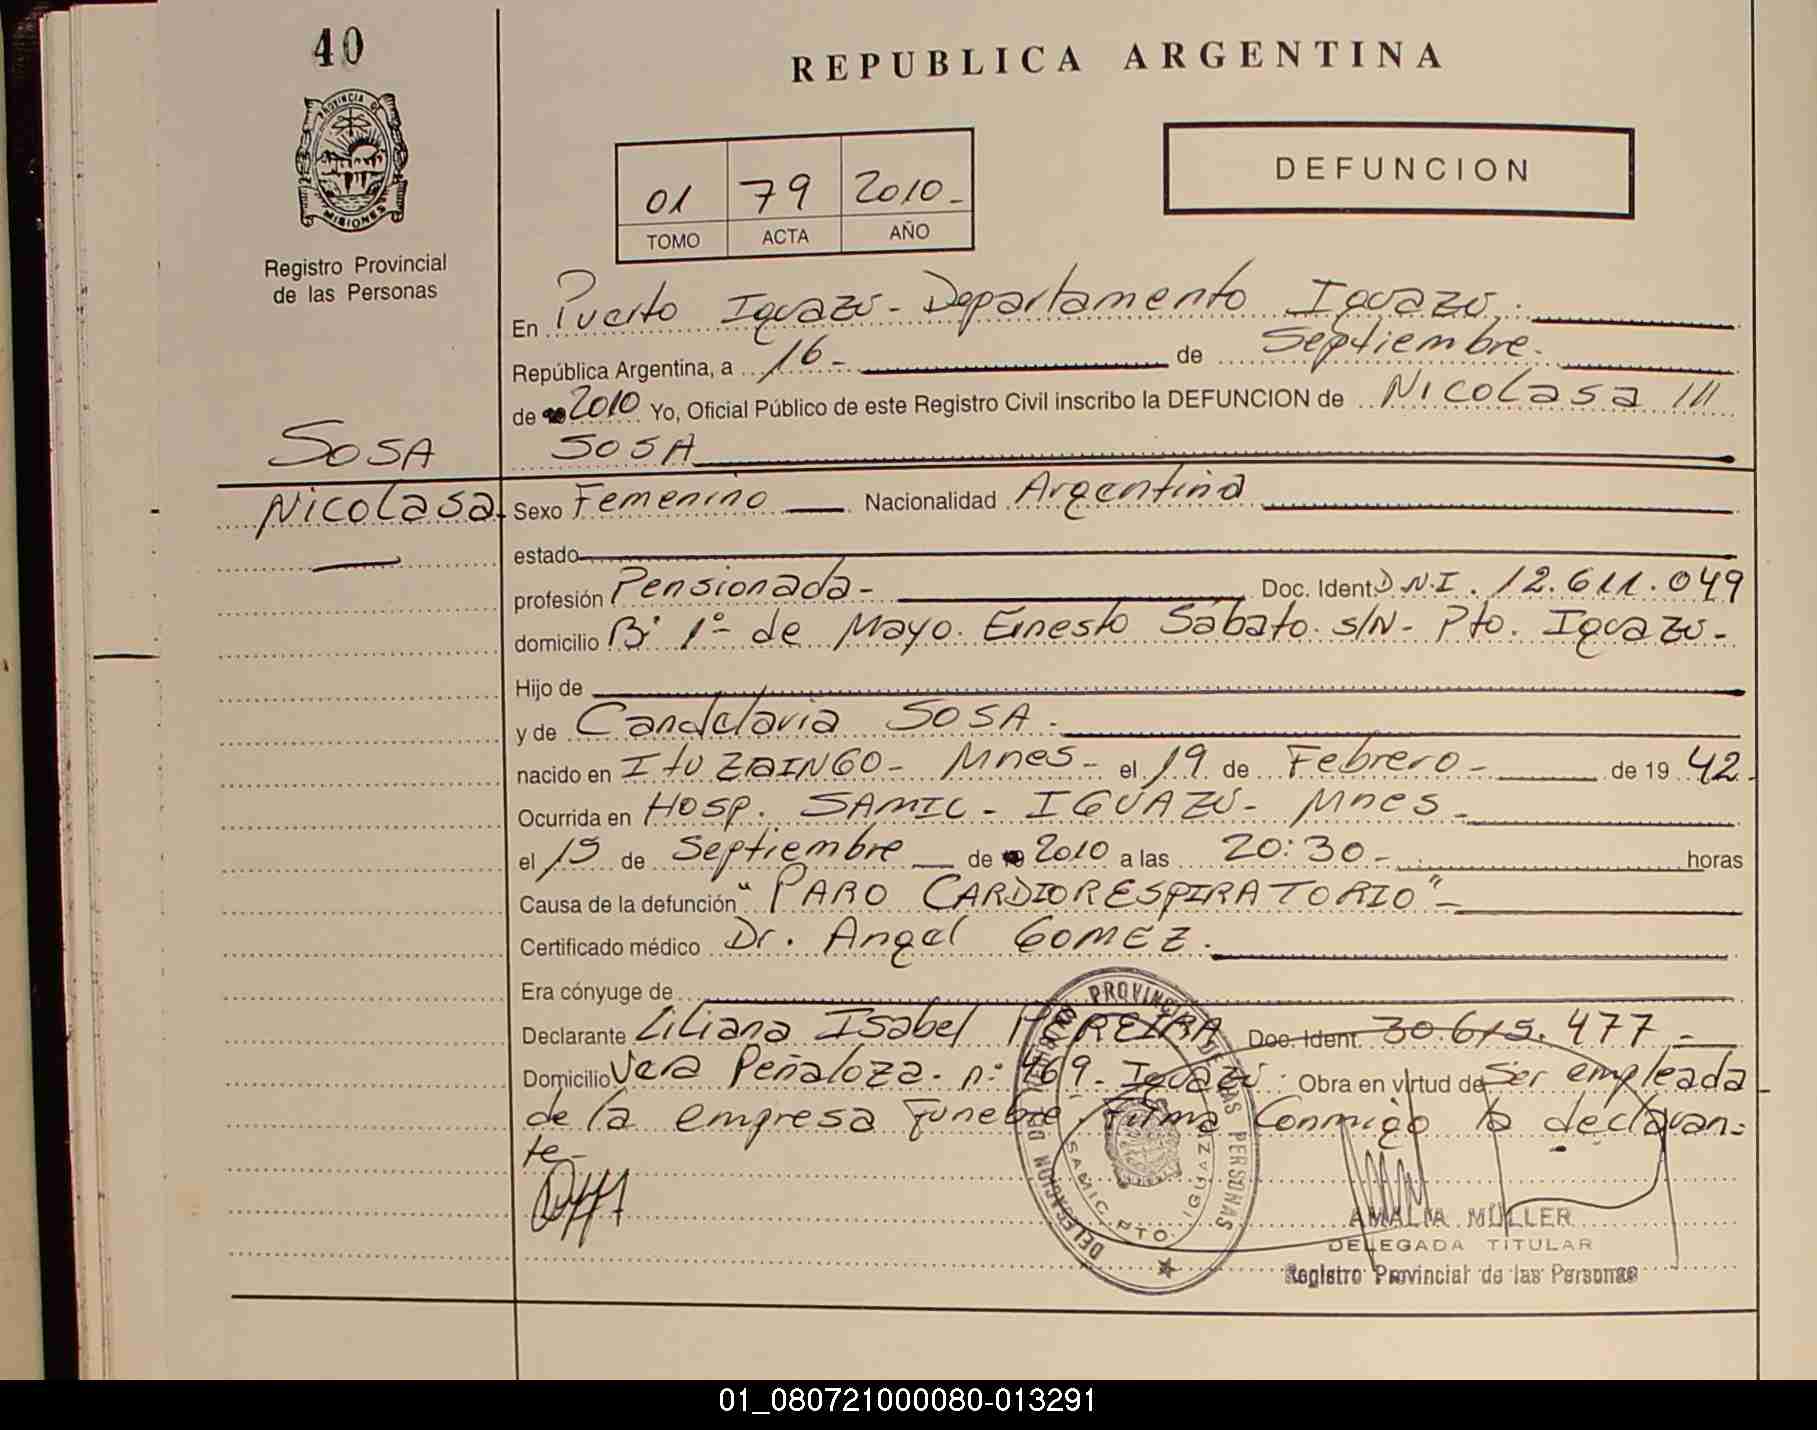 40
REPUBLICA ARGENTINA
PROVINCIA DE
MISIONES
Registro Provincial
de las Personas
01 79 2010-
TOMO ACTA AÑO
DEFUNCION
En Puerto Iguazú - Departamento Iguazú.
República Argentina, a 16- de Septiembre-
de 2010 Yo, Oficial Público de este Registro Civil inscribo la DEFUNCION de Nicolasa ///
SOSA
SOSA
Nicolasa-
Sexo Femenino Nacionalidad Argentina
estado
profesión Pensionada- Doc. Ident D.N.I. 12.611.049
domicilio B° 1°- de Mayo. Ernesto Sábato. s/N- Pto. Iguazú-
Hijo de
y de Candelaria SOSA.
nacido en ItUZAINGO- Mnes- el 19 de Febrero- de 19 42-
Ocurrida en HOSP. SAMIC- IGUAZÚ- Mnes-
el 15 de Septiembre de 2010 a las 20:30- horas
Causa de la defunción "PARO CARDIORESPIRATORIO"-
Certificado médico Dr. Angel GOMEZ.
Era cónyuge de
Declarante Liliana Isabel PEREIRA Doc. Ident. 30.615.477-
Domicilio Vera Peñaloza- n: 469- Iguazú. Obra en virtud de Ser empleada-
de la empresa Funebre. Firma Conmigo la declaran-
te-
DELEGACION DEL REGISTRO PROVINCIAL DE LAS PERSONAS
SAMIC. PTO. IGUAZU
AMALIA MÜLLER
DELEGADA TITULAR
Registro Provincial de las Personas
01_080721000080-013291